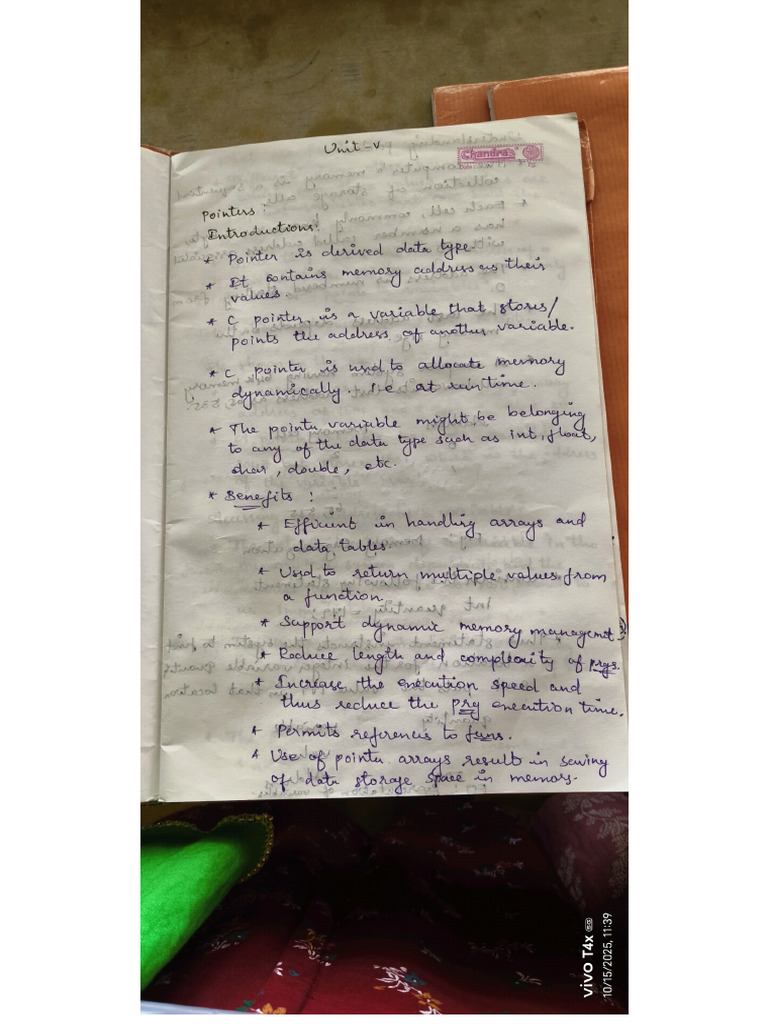 Unit - V
Chandra's
Pointers :
Introductions:
* Pointer is derived data type.
* It contains memory address as their
values.
* C pointer is a variable that stores/
points the address of another variable.
* C pointer is used to allocate memory
dynamically. i.e at run time.
* The pointer variable might be belonging
to any of the data type such as int, float,
char, double, etc.
* Benefits :
* Efficient in handling arrays and
data tables.
* Used to return multiple values from
a function.
* Support dynamic memory managemnt
* Reduce length and complexity of prgs.
* Increase the execution speed and
thus reduce the prg execution time.
* Permits references to funs.
* Use of pointer arrays result in saving
of data storage space in memory.
vivo T4x
10/15/2025, 11:39